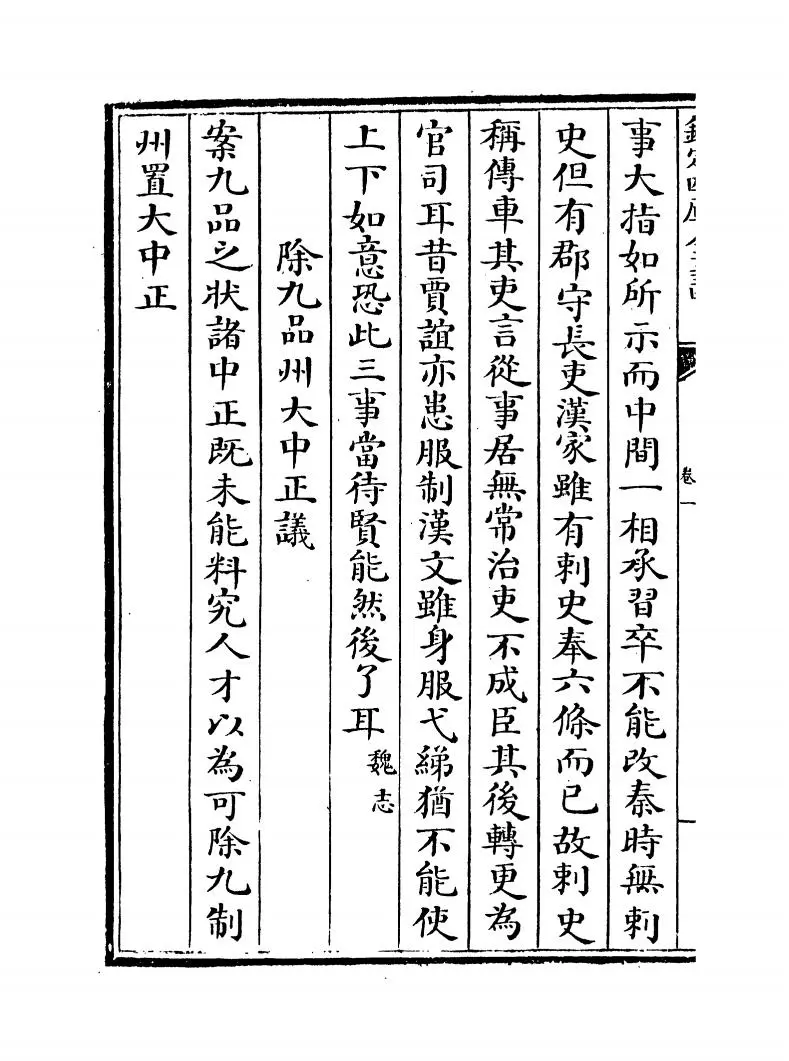 欽定四庫全書
卷一
事大指如所示而中間一相承習卒不能改秦時無刺
史但有郡守長吏漢家雖有刺史奉六條而已故刺史
稱傳車其吏言從事居無常治吏不成臣其後轉更為
官司耳昔賈誼亦患服制漢文雖身服弋綈猶不能使
上下如意恐此三事當待賢能然後了耳魏志
除九品州大中正議
案九品之狀諸中正既未能料究人才以為可除九制
州置大中正